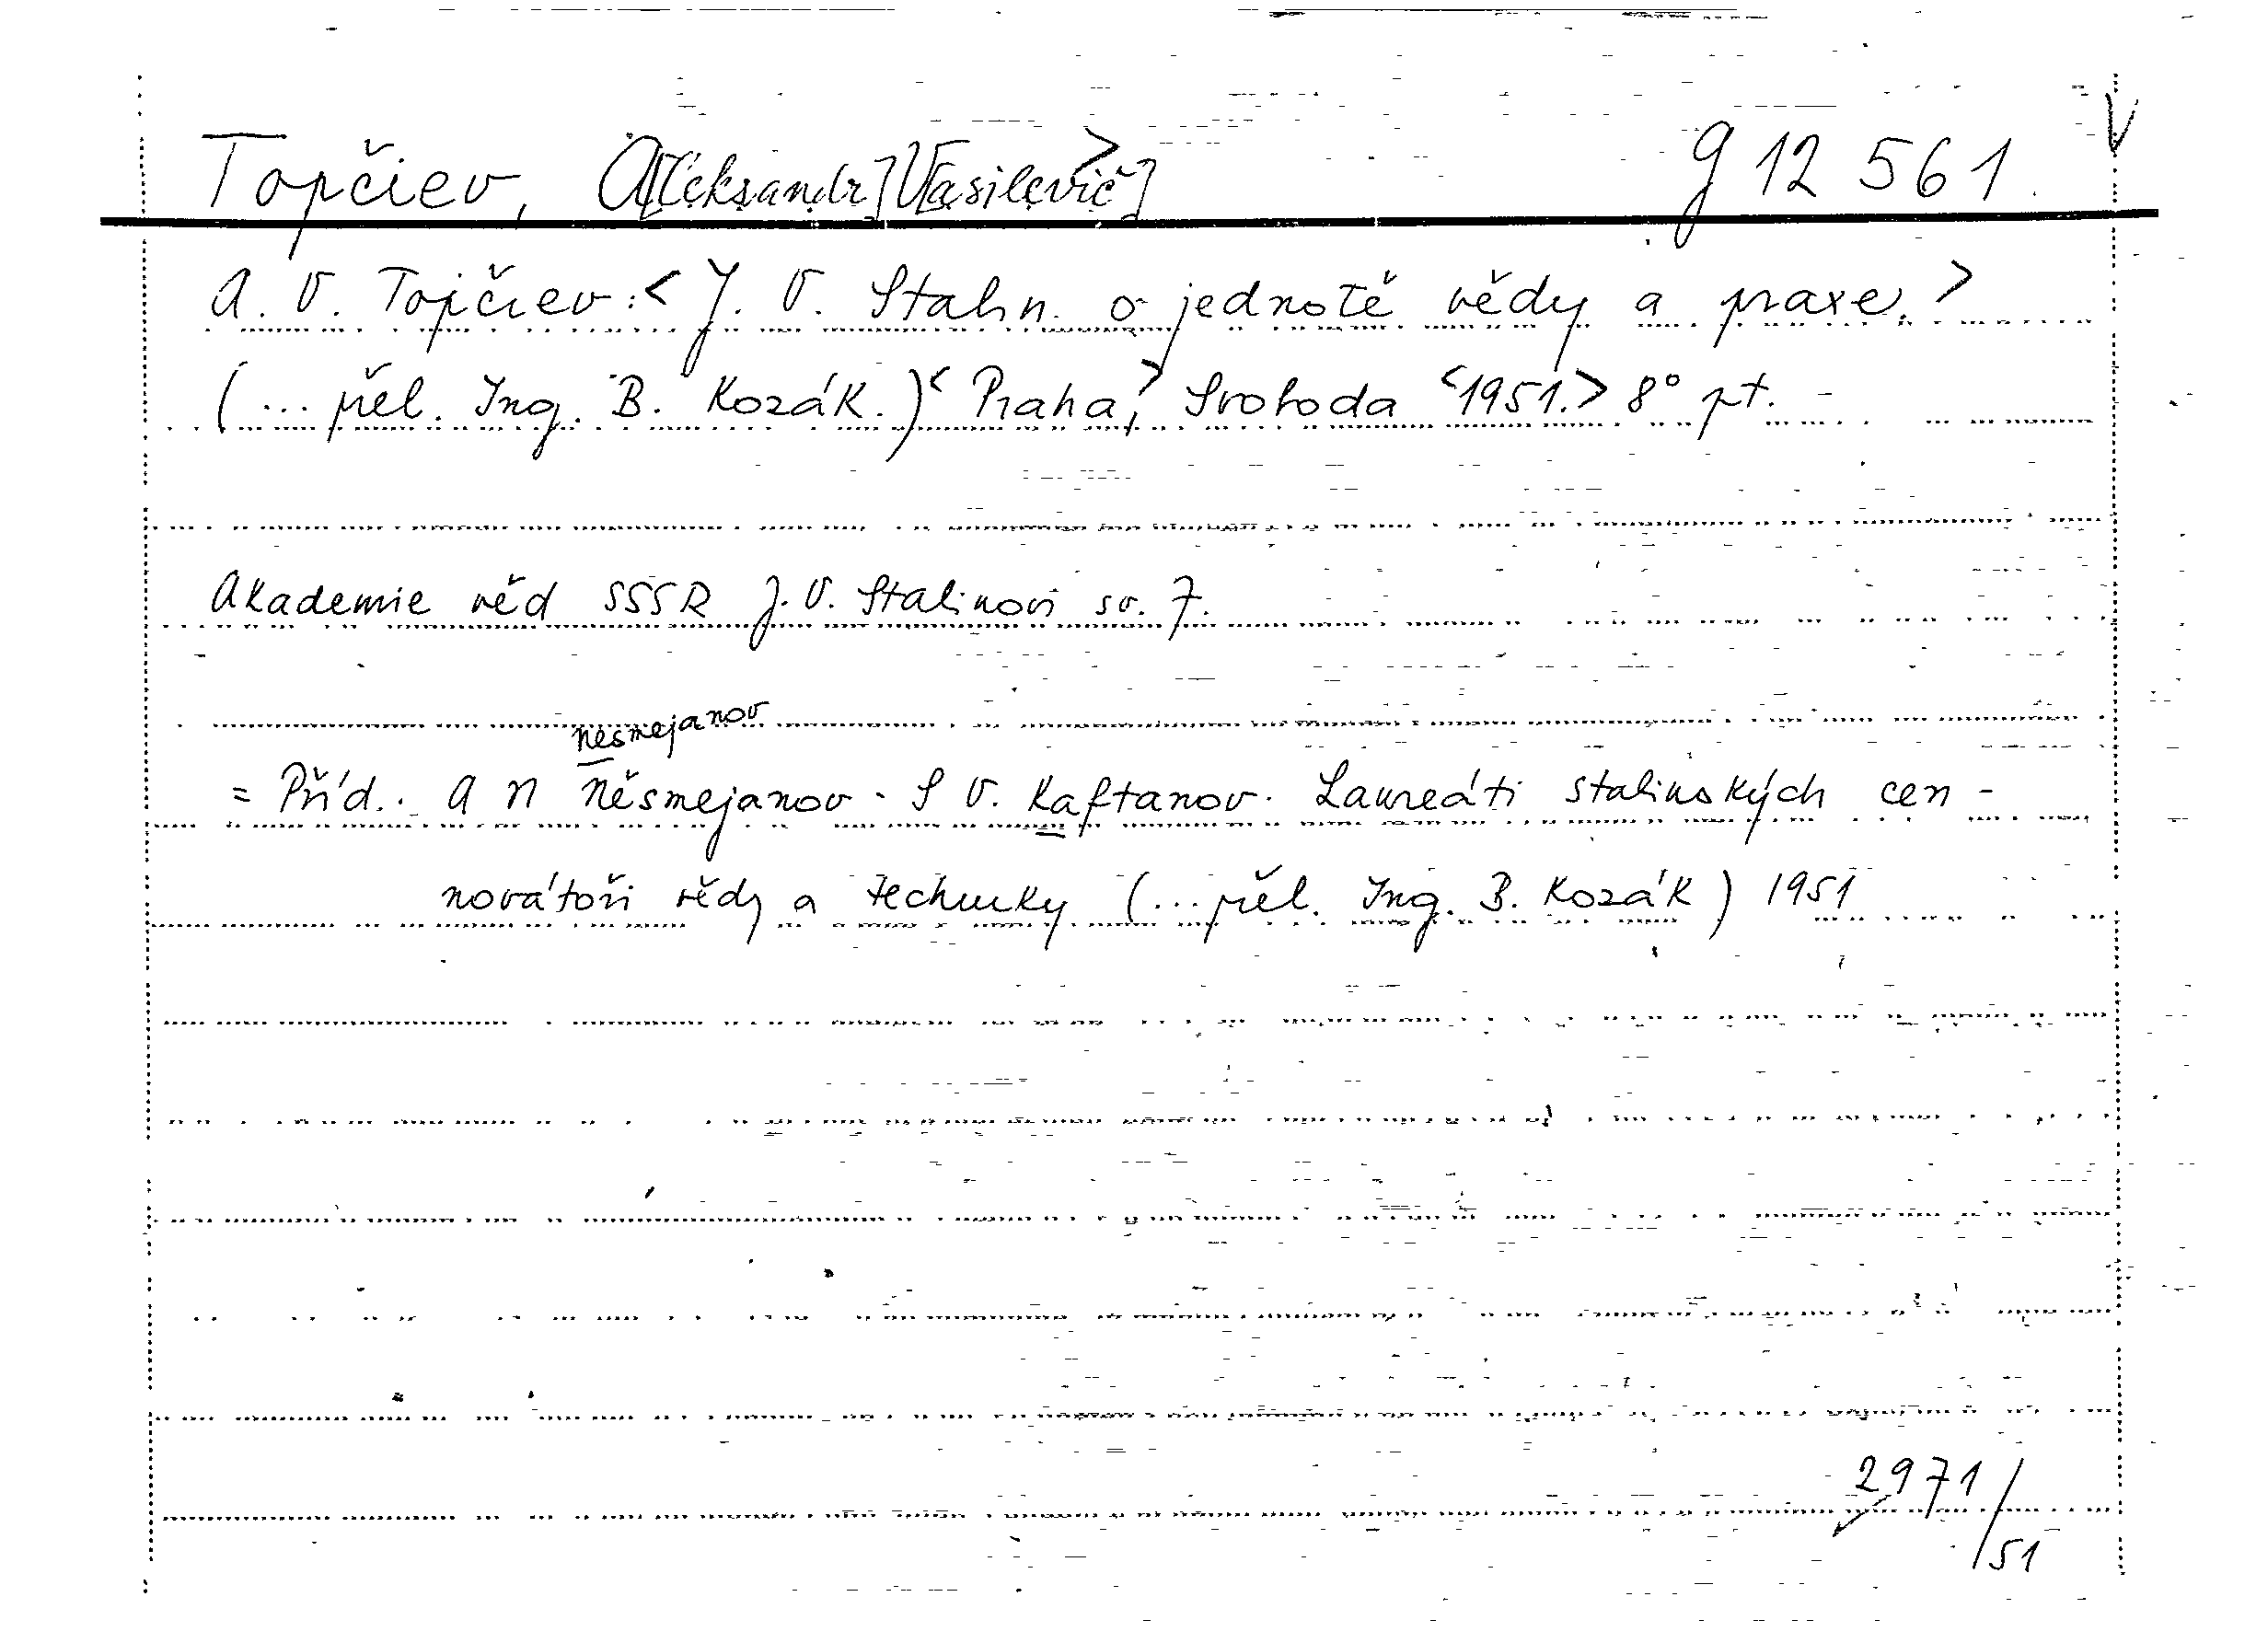 Topčiev, A[leksandr] V[asilevič]> g 12 561. V
A. V. Topčiev: < J. V. Stalin. o jednotě vědy a praxe. >
(... přel. Ing. B. Kozák.) < Praha, > Svoboda <1951.> 8° pt. -
Akademie věd SSSR J. V. Stalinovi sv. 7.
nesmejanov
= Příd.. A N Něsmejanov - S V. Kaftanov. Laureáti stalinských cen -
novátoři vědy a techniky (... přel. Ing. B. Kozák) 1951
2971/
51